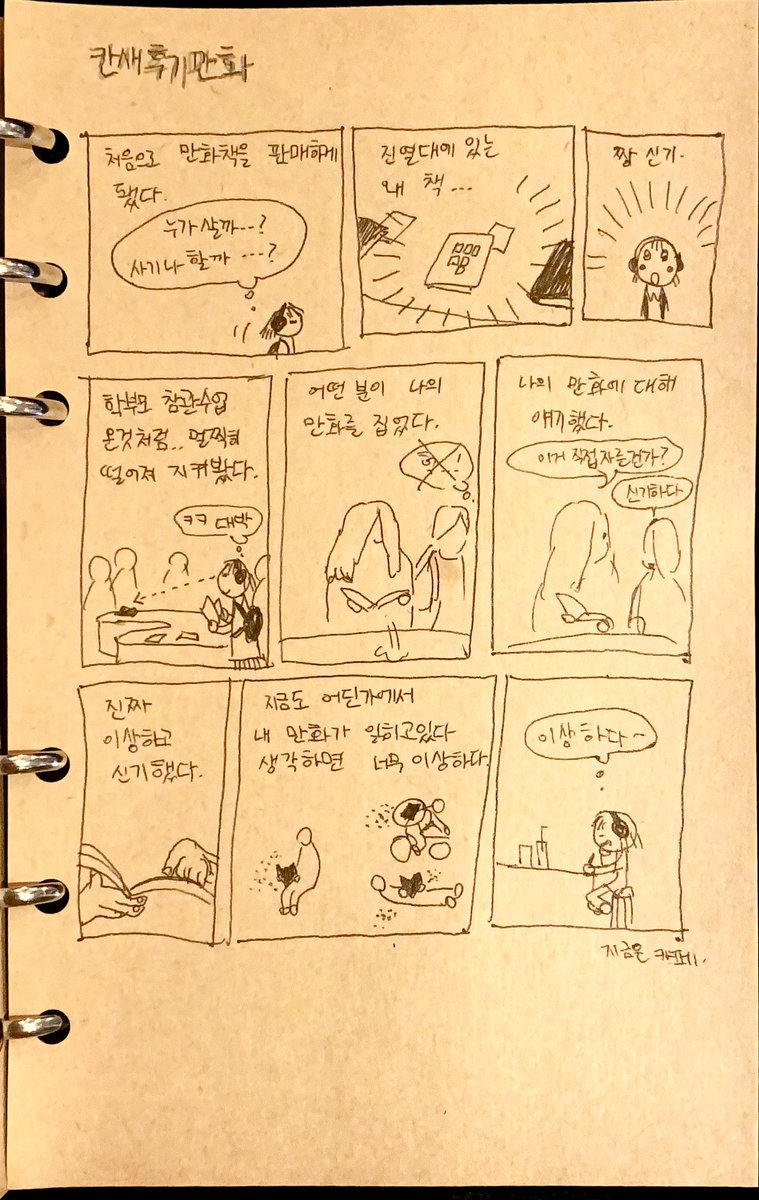 칸새후기만화
처음으로 만화책을 판매하게
됐다.
누가 살까...?
사기나 할까 ...?
진열대에 있는
내 책...
짱 신기.
학부모 참관수업
온것처럼.. 멀찍히
떨어져 지켜봤다.
ㅋㅋ 대박
어떤 분이 나의
만화를 집었다.
나의 만화에 대해
얘기했다.
이거 직접자른건가?
신기하다
진짜
이상하고
신기했다.
지금도 어딘가에서
내 만화가 읽히고있다
생각하면 너무 이상하다.
이상하다~
지금은 카페.